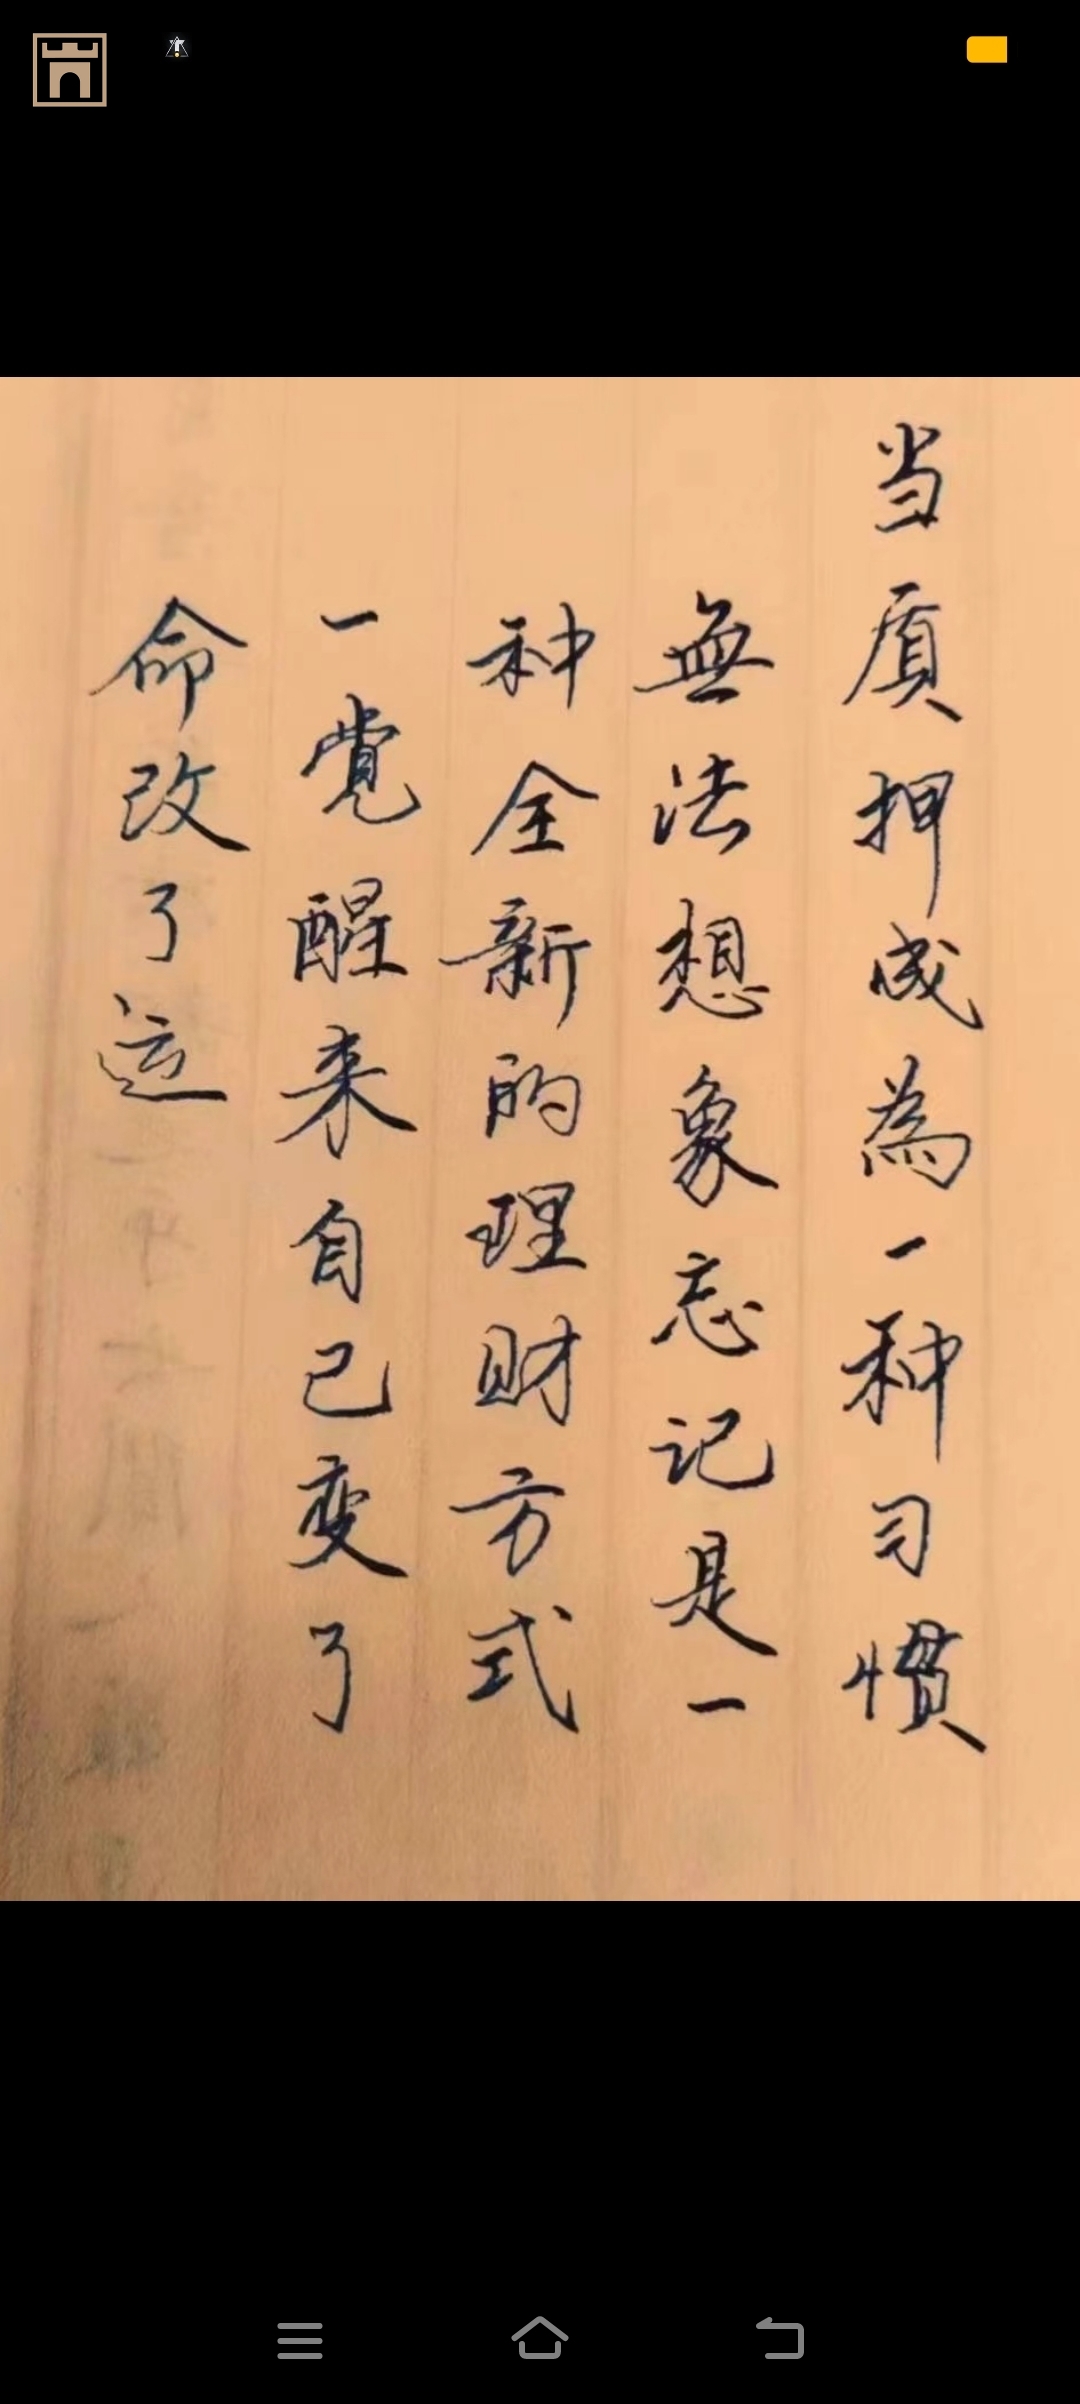 当质押成為一种习惯
無法想象忘记是一
种全新的理财方式
一覺醒来自己变了
命改了运